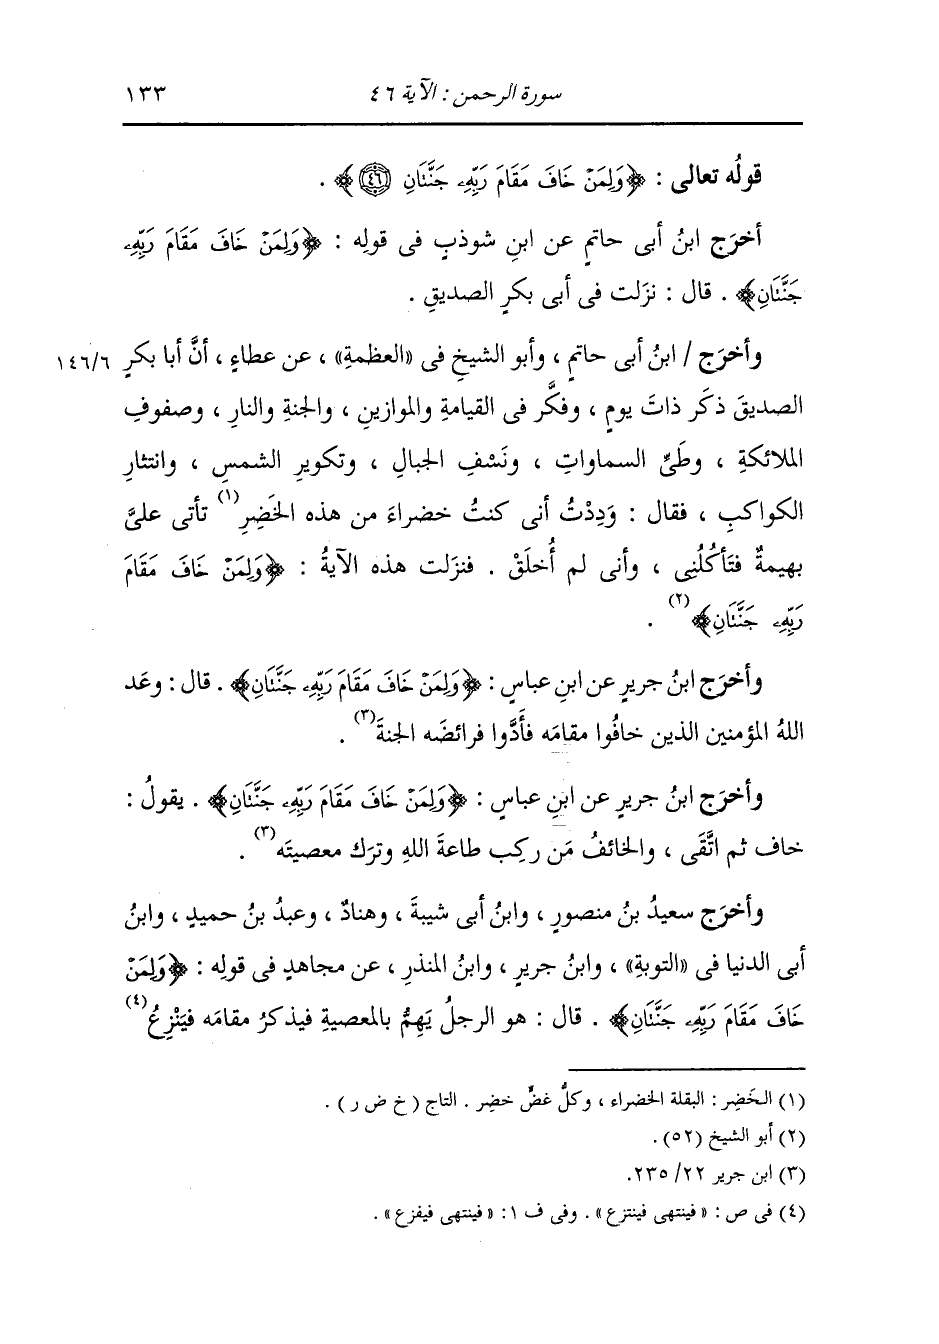 سورة الرحمن : الآية ٤٦ ١٣٣
قولُه تعالى : ﴿وَلِمَنْ خَافَ مَقَامَ رَبِّهِۦ جَنَّتَانِ ٤٦﴾ .
أخرَج ابنُ أبى حاتمٍ عن ابنِ شوذبٍ فى قولِه : ﴿وَلِمَنْ خَافَ مَقَامَ رَبِّهِۦ
جَنَّتَانِ﴾ . قال : نزَلت فى أبى بكرٍ الصديقِ .
وأخرَج / ابنُ أبى حاتمٍ ، وأبو الشيخِ فى «العظمةِ» ، عن عطاءٍ ، أنَّ أبا بكرٍ ١٤٦/٦
الصديقَ ذكَر ذاتَ يومٍ ، وفكَّر فى القيامةِ والموازينِ ، والجنةِ والنارِ ، وصفوفِ
الملائكةِ ، وطَىِّ السماواتِ ، ونَسْفِ الجبالِ ، وتكويرِ الشمسِ ، وانتثارِ
الكواكبِ ، فقال : وَدِدْتُ أنى كنتُ خضراءَ من هذه الخَضِرِ(١) تأتى علىَّ
بهيمةٌ فتَأكُلُنِى ، وأنى لم أُخلَقْ . فنزَلت هذه الآيةُ : ﴿وَلِمَنْ خَافَ مَقَامَ
رَبِّهِۦ جَنَّتَانِ﴾(٢) .
وأخرَج ابنُ جريرٍ عن ابنِ عباسٍ : ﴿وَلِمَنْ خَافَ مَقَامَ رَبِّهِۦ جَنَّتَانِ﴾ . قال : وعَد
اللهُ المؤمنين الذين خافُوا مقامَه فأَدَّوا فرائضَه الجنةَ(٣) .
وأخرَج ابنُ جريرٍ عن ابنِ عباسٍ : ﴿وَلِمَنْ خَافَ مَقَامَ رَبِّهِۦ جَنَّتَانِ﴾ . يقولُ :
خاف ثم اتَّقَى ، والخائفُ مَن ركِب طاعةَ اللهِ وترَك معصيتَه(٣) .
وأخرَج سعيدُ بنُ منصورٍ ، وابنُ أبى شيبةَ ، وهنادٌ ، وعبدُ بنُ حميدٍ ، وابنُ
أبى الدنيا فى «التوبةِ» ، وابنُ جريرٍ ، وابنُ المنذرِ ، عن مجاهدٍ فى قولِه : ﴿وَلِمَنْ
خَافَ مَقَامَ رَبِّهِۦ جَنَّتَانِ﴾ . قال : هو الرجلُ يَهِمُّ بالمعصيةِ فيذكرُ مقامَه فيَنْزِعُ(٤)
(١) الخَضِر : البقلة الخضراء ، وكلُّ غضٍّ خضِر . التاج ( خ ض ر ) .
(٢) أبو الشيخ (٥٢) .
(٣) ابن جرير ٢٢/ ٢٣٥.
(٤) فى ص : «فينتهى فينتزع» . وفى ف ١: «فينتهى فيفزع» .